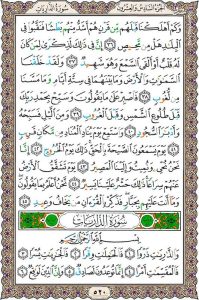 سُورَةُ الذَّارِيَاتِ
الجُزْءُ السَّادِسُ وَالعِشْرُونَ
وَكَمْ أَهْلَكْنَا قَبْلَهُم مِّن قَرْنٍ هُمْ أَشَدُّ مِنْهُم بَطْشًا فَنَقَّبُوا۟ فِى
ٱلْبِلَٰدِ هَلْ مِن مَّحِيصٍ ﴿٣٦﴾ إِنَّ فِى ذَٰلِكَ لَذِكْرَىٰ لِمَن كَانَ
لَهُۥ قَلْبٌ أَوْ أَلْقَى ٱلسَّمْعَ وَهُوَ شَهِيدٌ ﴿٣٧﴾ وَلَقَدْ خَلَقْنَا
ٱلسَّمَٰوَٰتِ وَٱلْأَرْضَ وَمَا بَيْنَهُمَا فِى سِتَّةِ أَيَّامٍ وَمَا مَسَّنَا
مِن لُّغُوبٍ ﴿٣٨﴾ فَٱصْبِرْ عَلَىٰ مَا يَقُولُونَ وَسَبِّحْ بِحَمْدِ رَبِّكَ
قَبْلَ طُلُوعِ ٱلشَّمْسِ وَقَبْلَ ٱلْغُرُوبِ ﴿٣٩﴾ وَمِنَ ٱلَّيْلِ فَسَبِّحْهُ
وَأَدْبَٰرَ ٱلسُّجُودِ ﴿٤٠﴾ وَٱسْتَمِعْ يَوْمَ يُنَادِ ٱلْمُنَادِ مِن مَّكَانٍ قَرِيبٍ
﴿٤١﴾ يَوْمَ يَسْمَعُونَ ٱلصَّيْحَةَ بِٱلْحَقِّ ذَٰلِكَ يَوْمُ ٱلْخُرُوجِ ﴿٤٢﴾ إِنَّا
نَحْنُ نُحْىِۦ وَنُمِيتُ وَإِلَيْنَا ٱلْمَصِيرُ ﴿٤٣﴾ يَوْمَ تَشَقَّقُ ٱلْأَرْضُ
عَنْهُمْ سِرَاعًا ذَٰلِكَ حَشْرٌ عَلَيْنَا يَسِيرٌ ﴿٤٤﴾ نَّحْنُ أَعْلَمُ بِمَا يَقُولُونَ
وَمَآ أَنتَ عَلَيْهِم بِجَبَّارٍ فَذَكِّرْ بِٱلْقُرْءَانِ مَن يَخَافُ وَعِيدِ ﴿٤٥﴾
سُورَةُ الذَّارِيَاتِ
بِسْمِ ٱللَّهِ ٱلرَّحْمَٰنِ ٱلرَّحِيمِ
وَٱلذَّٰرِيَٰتِ ذَرْوًا ﴿١﴾ فَٱلْحَٰمِلَٰتِ وِقْرًا ﴿٢﴾ فَٱلْجَٰرِيَٰتِ يُسْرًا ﴿٣﴾
فَٱلْمُقَسِّمَٰتِ أَمْرًا ﴿٤﴾ إِنَّمَا تُوعَدُونَ لَصَادِقٌ ﴿٥﴾ وَإِنَّ ٱلدِّينَ لَوَٰقِعٌ ﴿٦﴾
٥٢٠